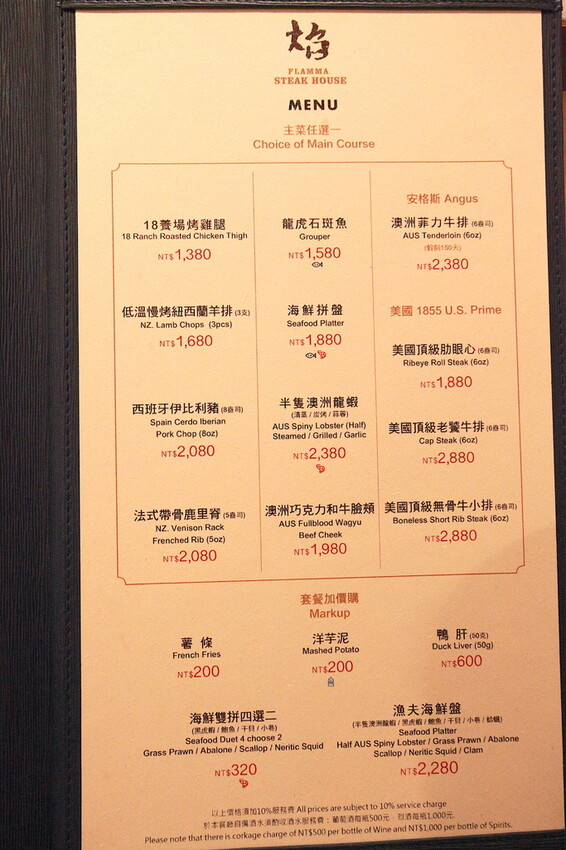 焰
FLAMMA
STEAK HOUSE
MENU
主菜任選一
Choice of Main Course
18養場烤雞腿
18 Ranch Roasted Chicken Thigh
NT$1,380
低溫慢烤紐西蘭羊排 (3支)
NZ. Lamb Chops (3pcs)
NT$1,680
西班牙伊比利豬 (8盎司)
Spain Cerdo Iberian
Pork Chop (8oz)
NT$2,080
法式帶骨鹿里脊 (5盎司)
NZ. Venison Rack
Frenched Rib (5oz)
NT$2,080
龍虎石斑魚
Grouper
NT$1,580
海鮮拼盤
Seafood Platter
NT$1,880
半隻澳洲龍蝦
(清蒸 / 炭烤 / 蒜蓉)
AUS Spiny Lobster (Half)
Steamed / Grilled / Garlic
NT$2,380
澳洲巧克力和牛臉頰
AUS Fullblood Wagyu
Beef Cheek
NT$1,980
安格斯 Angus
澳洲菲力牛排 (6盎司)
AUS Tenderloin (6oz)
(穀飼150天)
NT$2,380
美國 1855 U.S. Prime
美國頂級肋眼心 (6盎司)
Ribeye Roll Steak (6oz)
NT$1,880
美國頂級老饕牛排 (6盎司)
Cap Steak (6oz)
NT$2,880
美國頂級無骨牛小排 (6盎司)
Boneless Short Rib Steak (6oz)
NT$2,880
套餐加價購
Markup
薯 條
French Fries
NT$200
洋芋泥
Mashed Potato
NT$200
鴨 肝 (50克)
Duck Liver (50g)
NT$600
海鮮雙拼四選二
(黑虎蝦 / 鮑魚 / 干貝 / 小卷)
Seafood Duet 4 choose 2
Grass Prawn / Abalone / Scallop / Neritic Squid
NT$320
漁夫海鮮盤
(半隻澳洲龍蝦 / 黑虎蝦 / 鮑魚 / 干貝 / 小卷 / 蛤蠣)
Seafood Platter
Half AUS Spiny Lobster / Grass Prawn / Abalone
Scallop / Neritic Squid / Clam
NT$2,280
以上價格須加10%服務費 All prices are subject to 10% service charge
於本餐廳自備酒水須酌收酒水服務費：葡萄酒每瓶500元、烈酒每瓶1,000元.
Please note that there is corkage charge of NT$500 per bottle of Wine and NT$1,000 per bottle of Spirits.